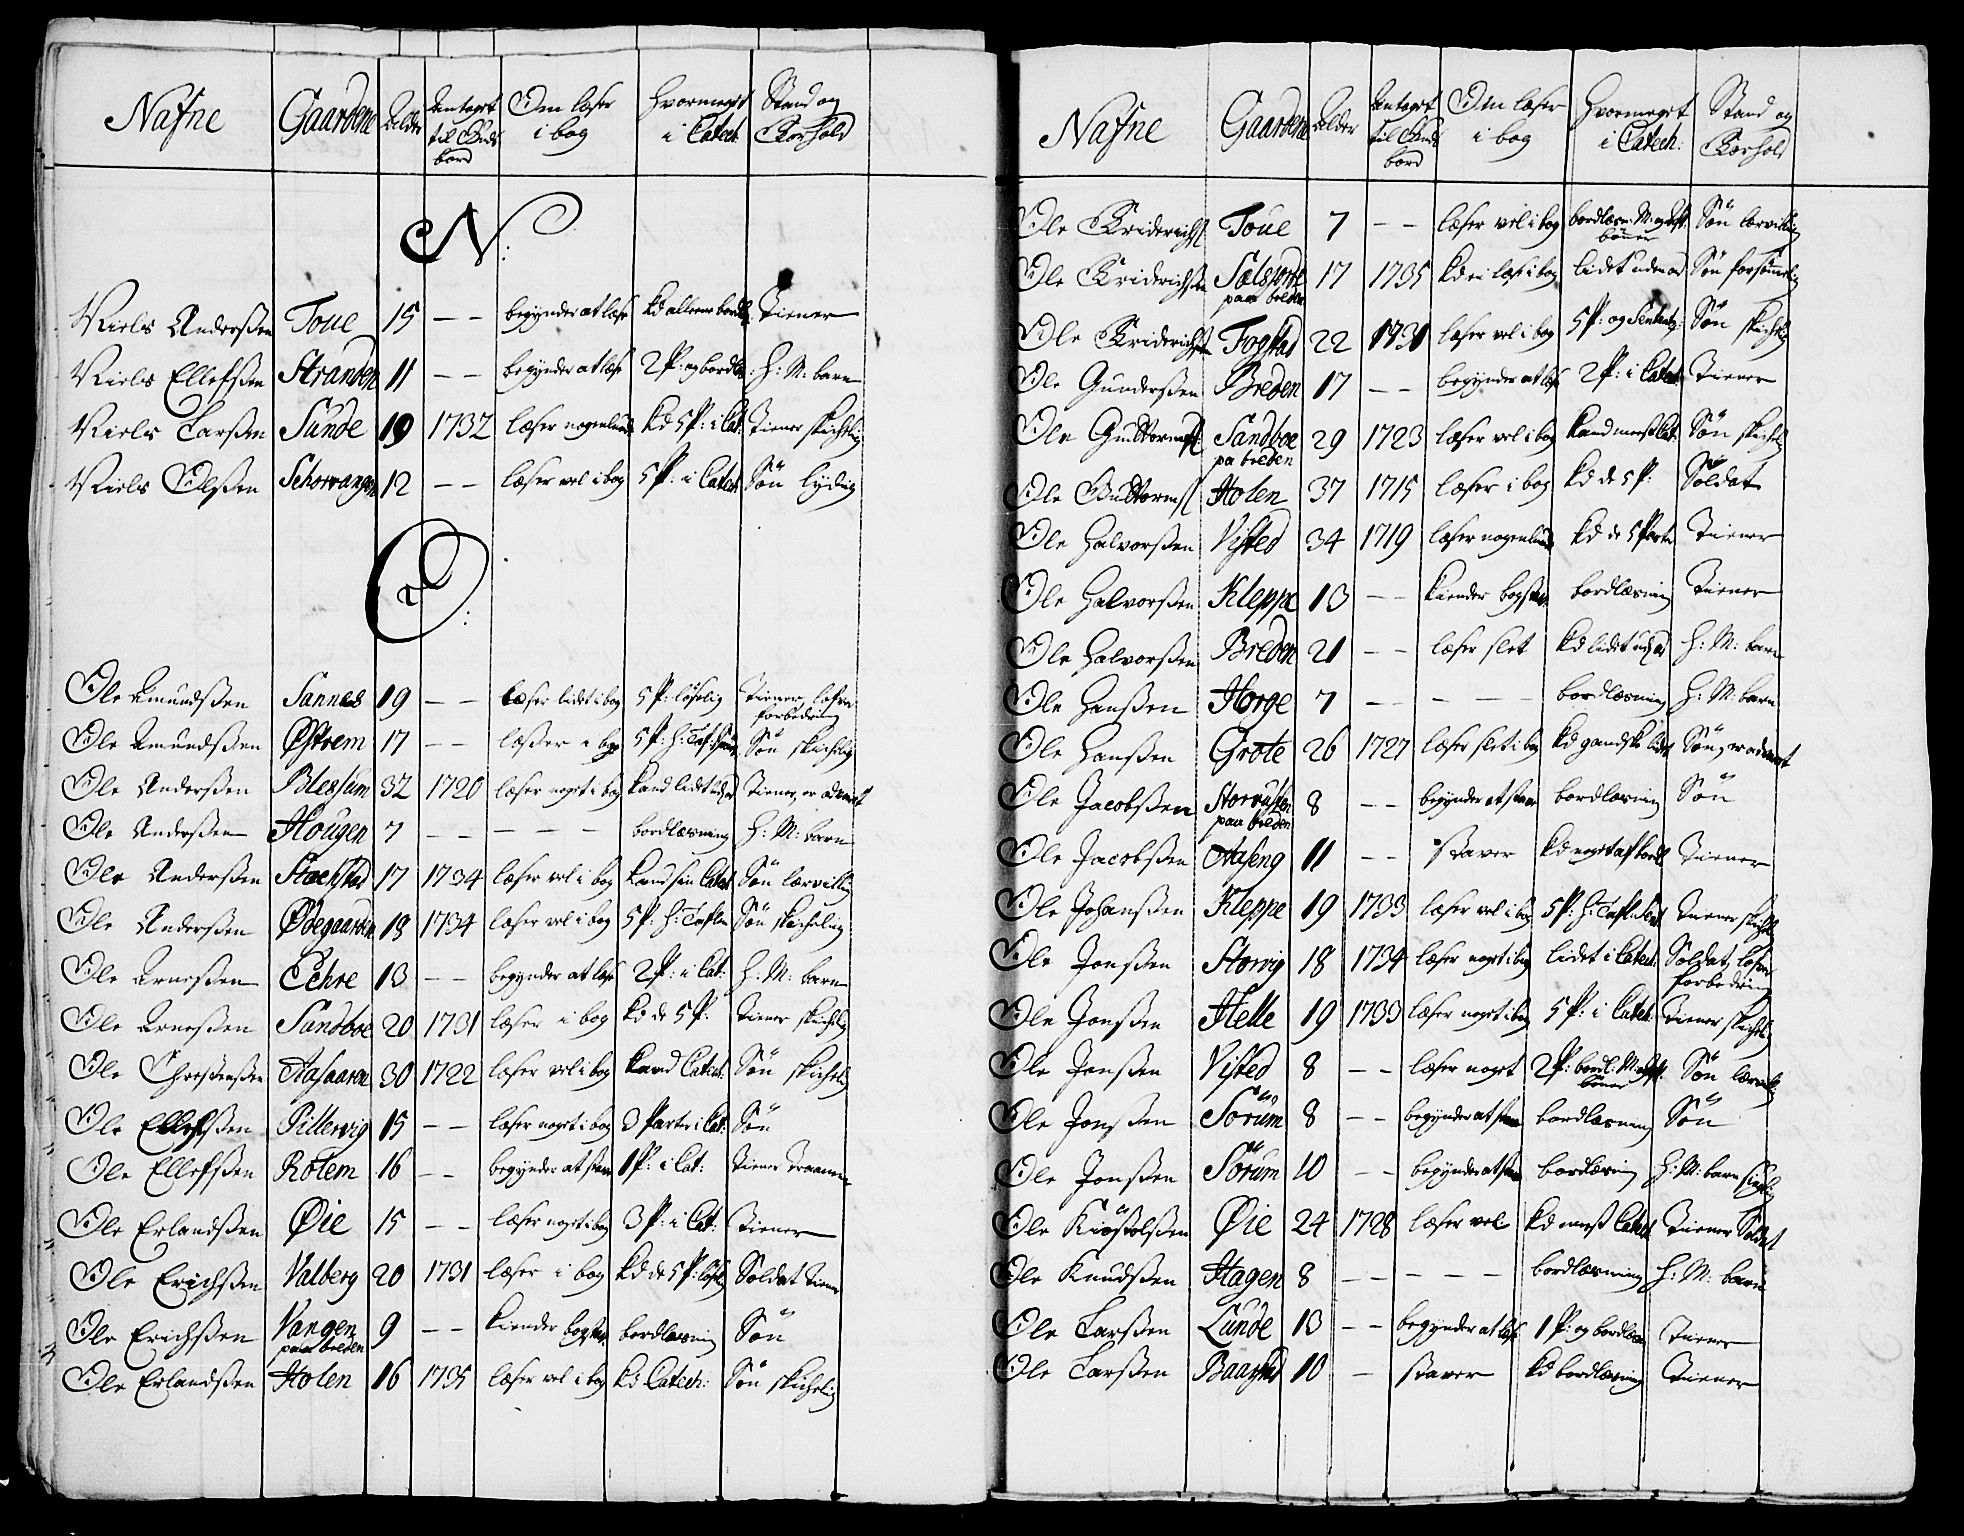 Nafne Gaardene Alder Antaget til Guds bord Om læser i bog Hvormeget i Catech: Stand og Forhold
N:
Niels Anderßen Toue 15 – – begynder at læse kd alleene bordl: Tiener
Niels Ellefsen Stranden 11 – – begynder at læse 2 P: og bordlæ: H: M: barn
Niels Larßen Sunde 19 1732 læser nogenlunde kd 5 P: i Cat: Tiener skichelig
Niels Olßen Schorvangen 12 – – læser vel i bog 5 P: i Catech: Søn lydig
O:
Ole Amundßen Sannes 19 – – læser lidet i bog 5 P: løselig Tiener, lofver forbedring
Ole Amundßen Østrem 17 – – læser i bog 5 P: H: Taf: Søn skichelig
Ole Anderßen Blessum 32 1720 læser noget i bog kand lidet ud Tiener, er advaret
Ole Anderßen Hougen 7 – – – – – bordlæsning H: M: barn
Ole Anderßen Stachstad 17 1734 læser vel i bog kand sin Catech: Søn lærvillig
Ole Anderßen Ødegaarden 18 1734 læser vel i bog 5 P: H: Taflen Søn skichelig
Ole Arneßen Eehre 13 – – begynder at læse 2 P: i Cat: H: M: barn
Ole Arneßen Sandboe 20 1731 læser i bog kd de 5 P: Tiener skichelig
Ole Chrestenßen Aasaaren 30 1722 læser vel i bog kand Catech: Søn skichelig
Ole Ellefsßen Pillervig 15 – – læser noget i bog 3 Parter i Cat: Søn
Ole Ellefsßen Rolem 16 – – begynder at stave 1 P: i Cat: Tiener
Ole Erlandßen Øie 15 – – læser noget i bog 3 P: i Cat: Tiener
Ole Erichßen Valberg 20 1731 læser i bog kd de 5 P: løsel: Soldat Tiener
Ole Erichßen Vangen paa breden 9 – – kiender bogstav: bordlæsning Søn
Ole Erlandßen Holen 16 1735 læser vel i bog kd Catech: Søn skichelig
Nafne Gaardene Alder Antaget til Guds bord Om læser i bog Hvormeget i Catech: Stand og Forhold
Ole Friderichs: Toue 7 – – læser vel i bog bordlæsn: M: og Aft: bønner Søn lærvillig
Ole Friderichßen Sælsjorde paa breden 17 1735 kd ei læse i bog lidet uden ad Søn forsømmelig
Ole Friderichßen Fogstad 22 1731 læser vel i bog 5 P: og Sententz: Søn skichelig
Ole Gunderßen Breden 17 – – begynder at læse 2 P: i Catech: Tiener
Ole Guttorms: Sandboe paa breden 29 1723 læser vel i bog kand meest Cat: Søn skichelig
Ole Guttorms: Holen 37 1715 læser i bog kd de 5 P: Soldat
Ole Halvorßen Visted 34 1719 læser nogenlunde kd de 5 Parter Tiener
Ole Halvorßen Kleppe 13 – – kiender bogstav: bordlæsning Tiener
Ole Halvorßen Breden 21 – – læser slet kd lidet ud ad H: M: barn
Ole Hanßen Horge 7 – – – – bordlæsning H: M: barn
Ole Hanßen Grote 26 1727 læser slet i bog kd gandske lidet Søn, er advaret
Ole Jacobßen Storrusten paa breden 8 – – begynder at stave bordlæsning Søn
Ole Jacobßen Aaseng 11 – – staver kd noget af bordl: Tiener
Ole Johanßen Kleppe 19 1733 læser vel i bog 5 P: H: Tafl: Sent Tiener skichel:
Ole Jonßen Storvig 18 1734 læser noget i bog lidet i Catech: Soldat, lofver forbedring
Ole Jonßen Helle 19 1733 læser noget i bog 5 P: i Catech: Tiener skichelig
Ole Jonßen Visted 8 – – læser noget 2 P: bordl: M: og Aft: bønner Søn lærvillig
Ole Jonßen Sörum 8 – – begynder at stave bordlæsning Søn
Ole Jonßen Sörum 10 – – begynder at stave bordlæsning H: M: barn
Ole Kiøstolsßen Øie 24 1728 læser vel kd meest Catech: Tiener Soldat
Ole Knudßen Hagen 8 – – – – – bordlæsning H: M: barn
Ole Larßen Lunde 13 – – begynder at læse 1 P: og bordlæs: Tiener
Ole Larßen Baarstad 10 – staver kd bordlæsning Tiener